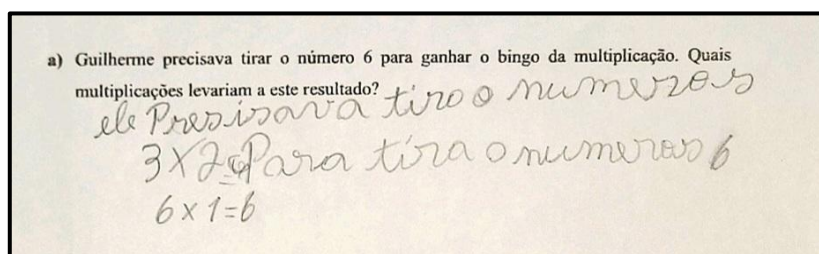 a) Guilherme precisava tirar o número 6 para ganhar o bingo da multiplicação. Quais
multiplicações levariam a este resultado?
ele Presisava tiro o numeros
3 X 2 Para tira o numeros 6
6 x 1 = 6